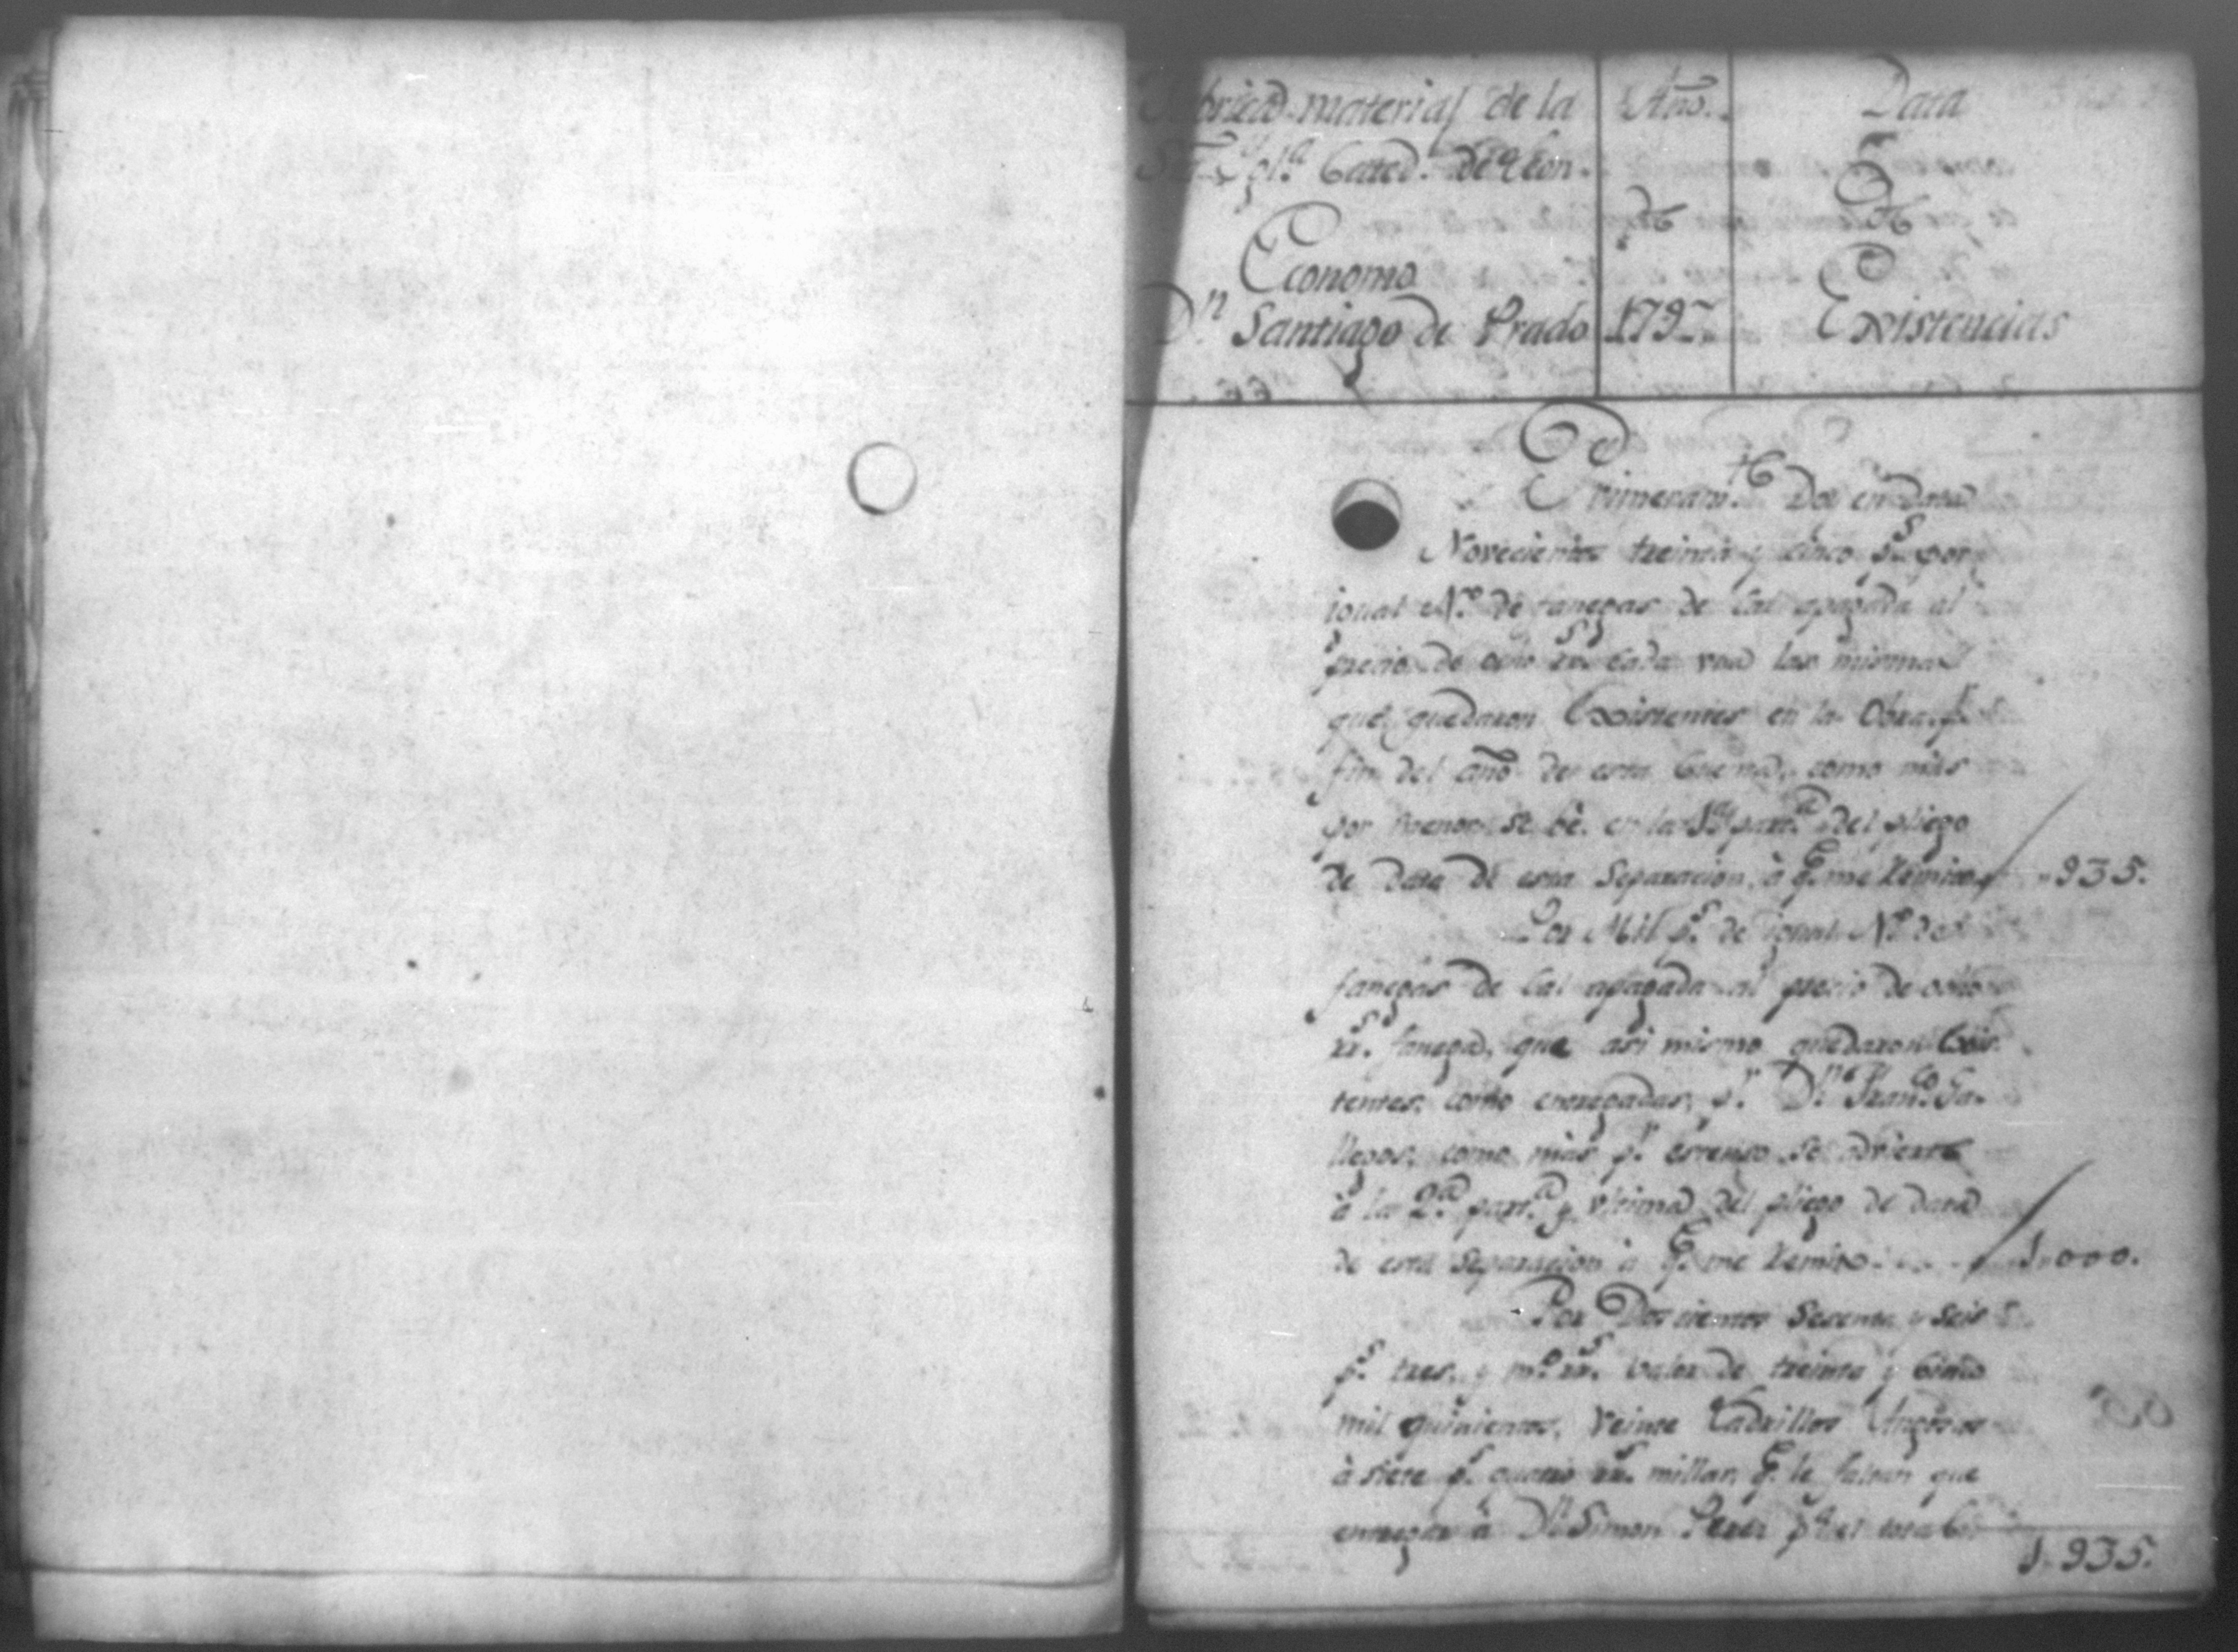 Fabrica material de la
Sta Ygla Cated.l de Leon.
Economo
Dn. Santiago de Prado
Año.
de
1797.
Data
de
Existencias
Primeram.te Doy en data
Novecientos treinta y cinco ps. por
igual No. de fanegas de Cal apagada al
precio de ocho rrs. Cada una las mismas
que quedaron Existentes en la Obra pr.
fin del año de esta Cuenta, como más
por menor se bé en la 1a part.a del pliego
de Data de esta Separacion, à q.e me Remito 935.
Por Mil ps. de igual No. de
fanegas de Cal apagada al precio de ocho
rrs. fanega, que asi mismo quedaron Exis-
tentes, como entregadas, pr. Dn. Franco. Ga-
llegos, como más pr. estenso se advierte
à la 2.a part.a y ultima del pliego de data
de esta Separacion à q.e me Remito 1.000.
Por Doscientos sesenta y seis
ps. tres, y mo. rrs. valor de treinta y Cinco
mil quinientos, veinte Ladrillos Angostos
à siete ps. quatro rrs. millar, q.e le faltan que
entregar à Dn. Simon Perez pa. el
1.935.